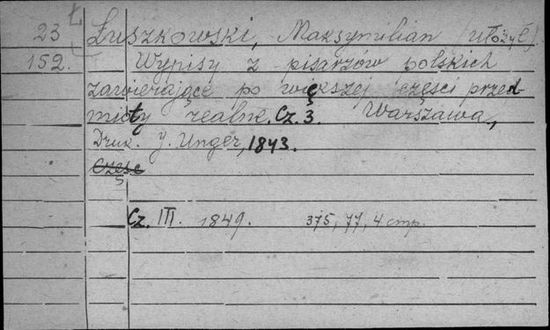 23 Ł Łuszkowski, Maksymilian (ułożył).
152. Wypisy z pisarzów polskich
zawierające po większej części przed-
mioty realne. Cz. 3. Warszawa,
Druk. J. Unger, 1843.
Część
Cz. III. 1849. 375, 77, 4 стр.